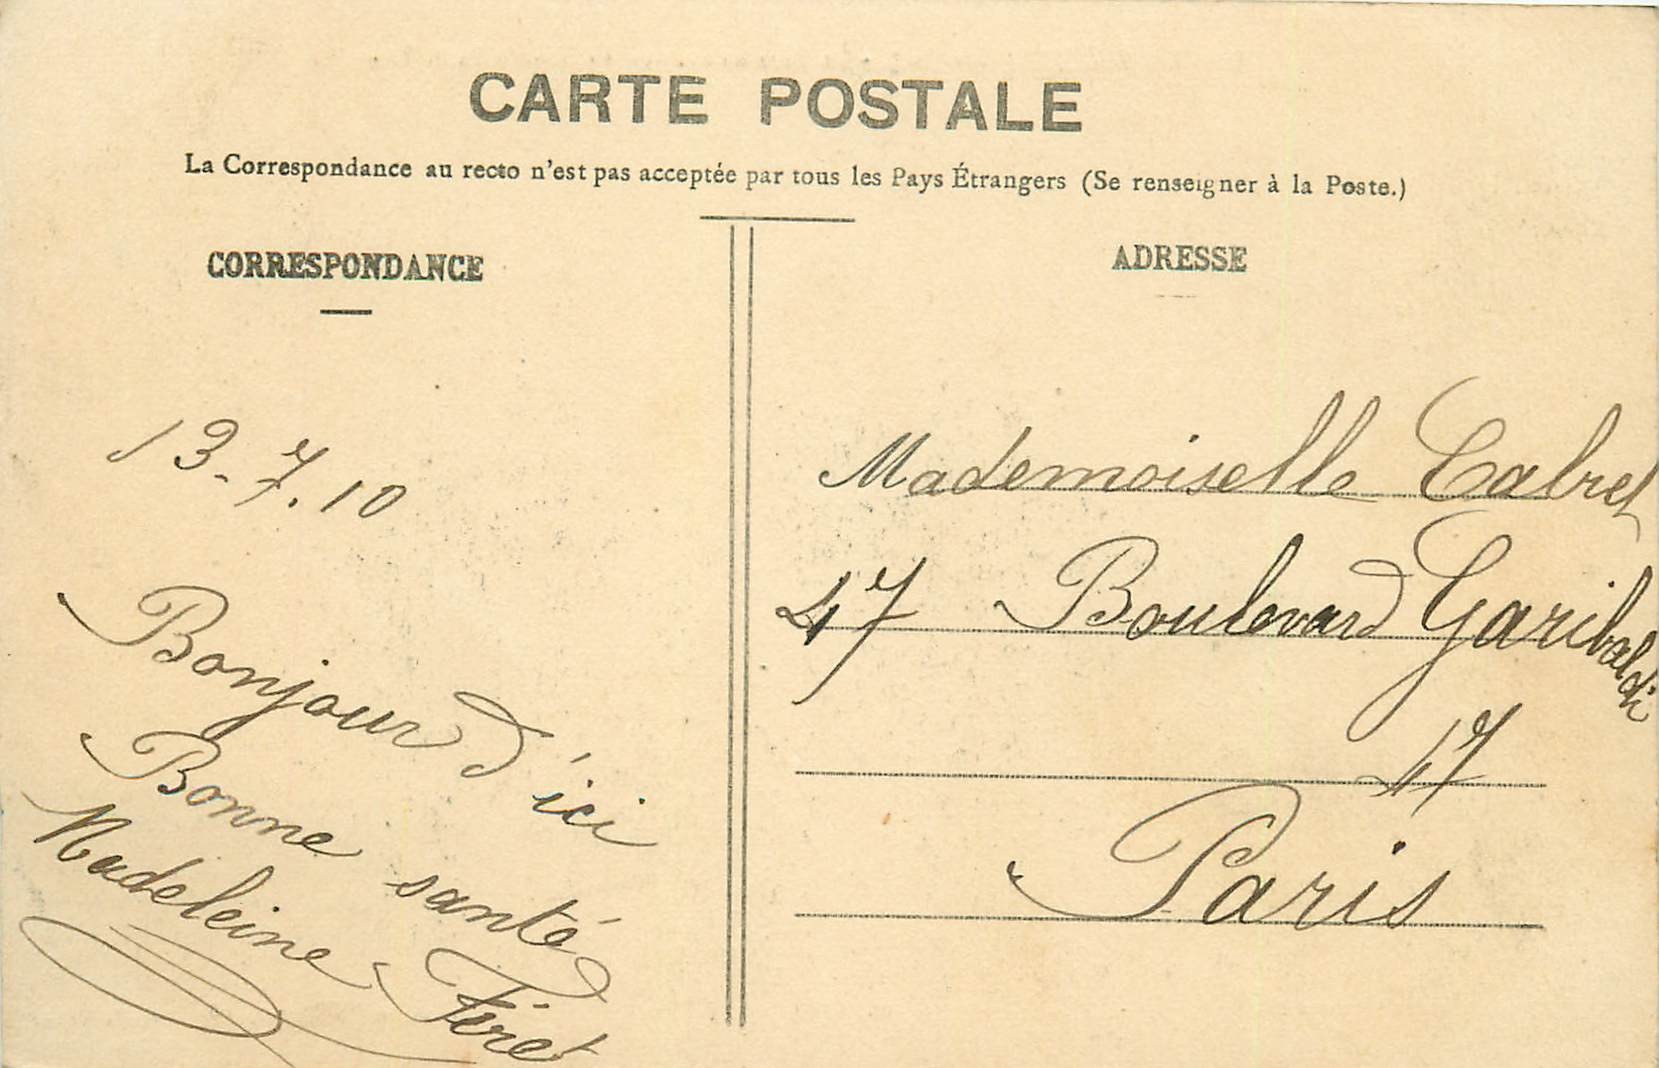 CARTE POSTALE
La Correspondance au recto n'est pas acceptée par tous les Pays Étrangers (Se renseigner à la Poste.)
CORRESPONDANCE
13-7.10
Bonjour d'ici
Bonne santé
Madeleine Féret
ADRESSE
Mademoiselle Cabret
47 Boulevard Garibaldi
47
Paris